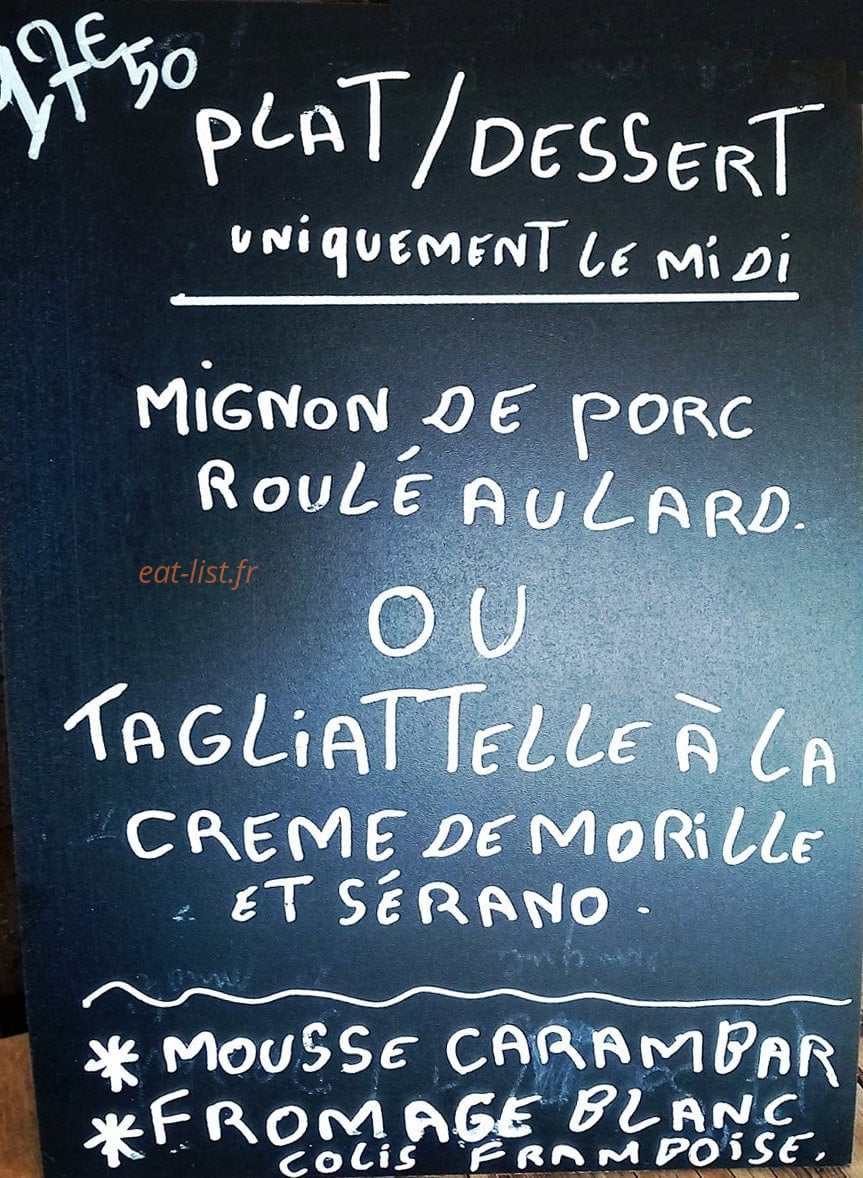 17€50
PLAT/DESSERT
UNIQUEMENT LE MIDI
MIGNON DE PORC
ROULÉ AU LARD.
eat-list.fr
OU
TAGLIATTELLE À LA
CREME DE MORILLE
ET SÉRANO.
* MOUSSE CARAMBAR
* FROMAGE BLANC
COLIS FRAMBOISE.